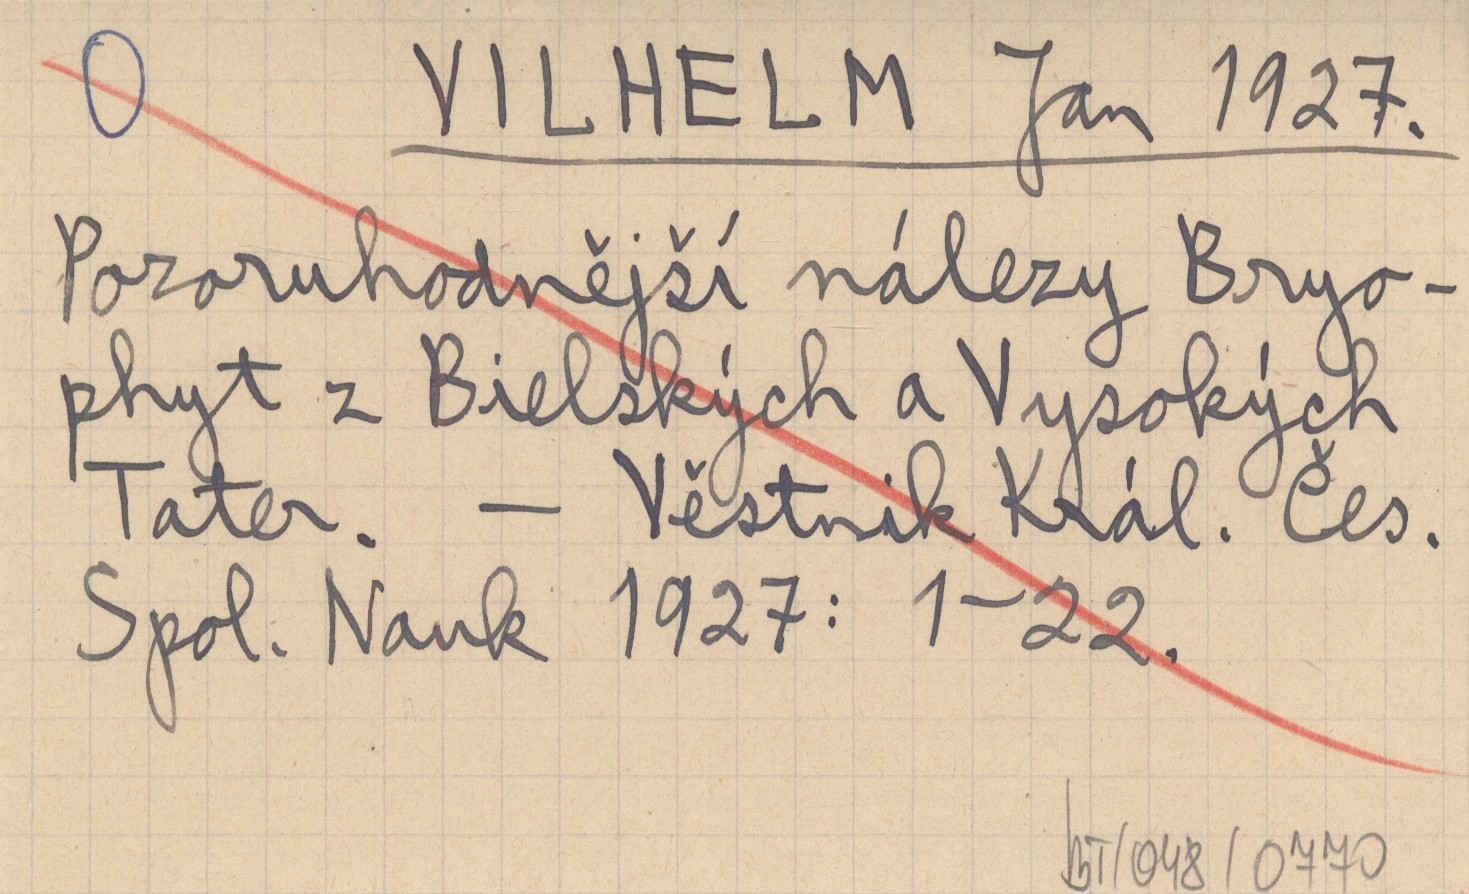 O VILHELM Jan 1927.
Pozoruhodnější nálezy Bryo-
phyt z Bielských a Vysokých
Tater. — Věstnik Král. Čes.
Spol. Nauk 1927: 1-22.
BT/048/0770